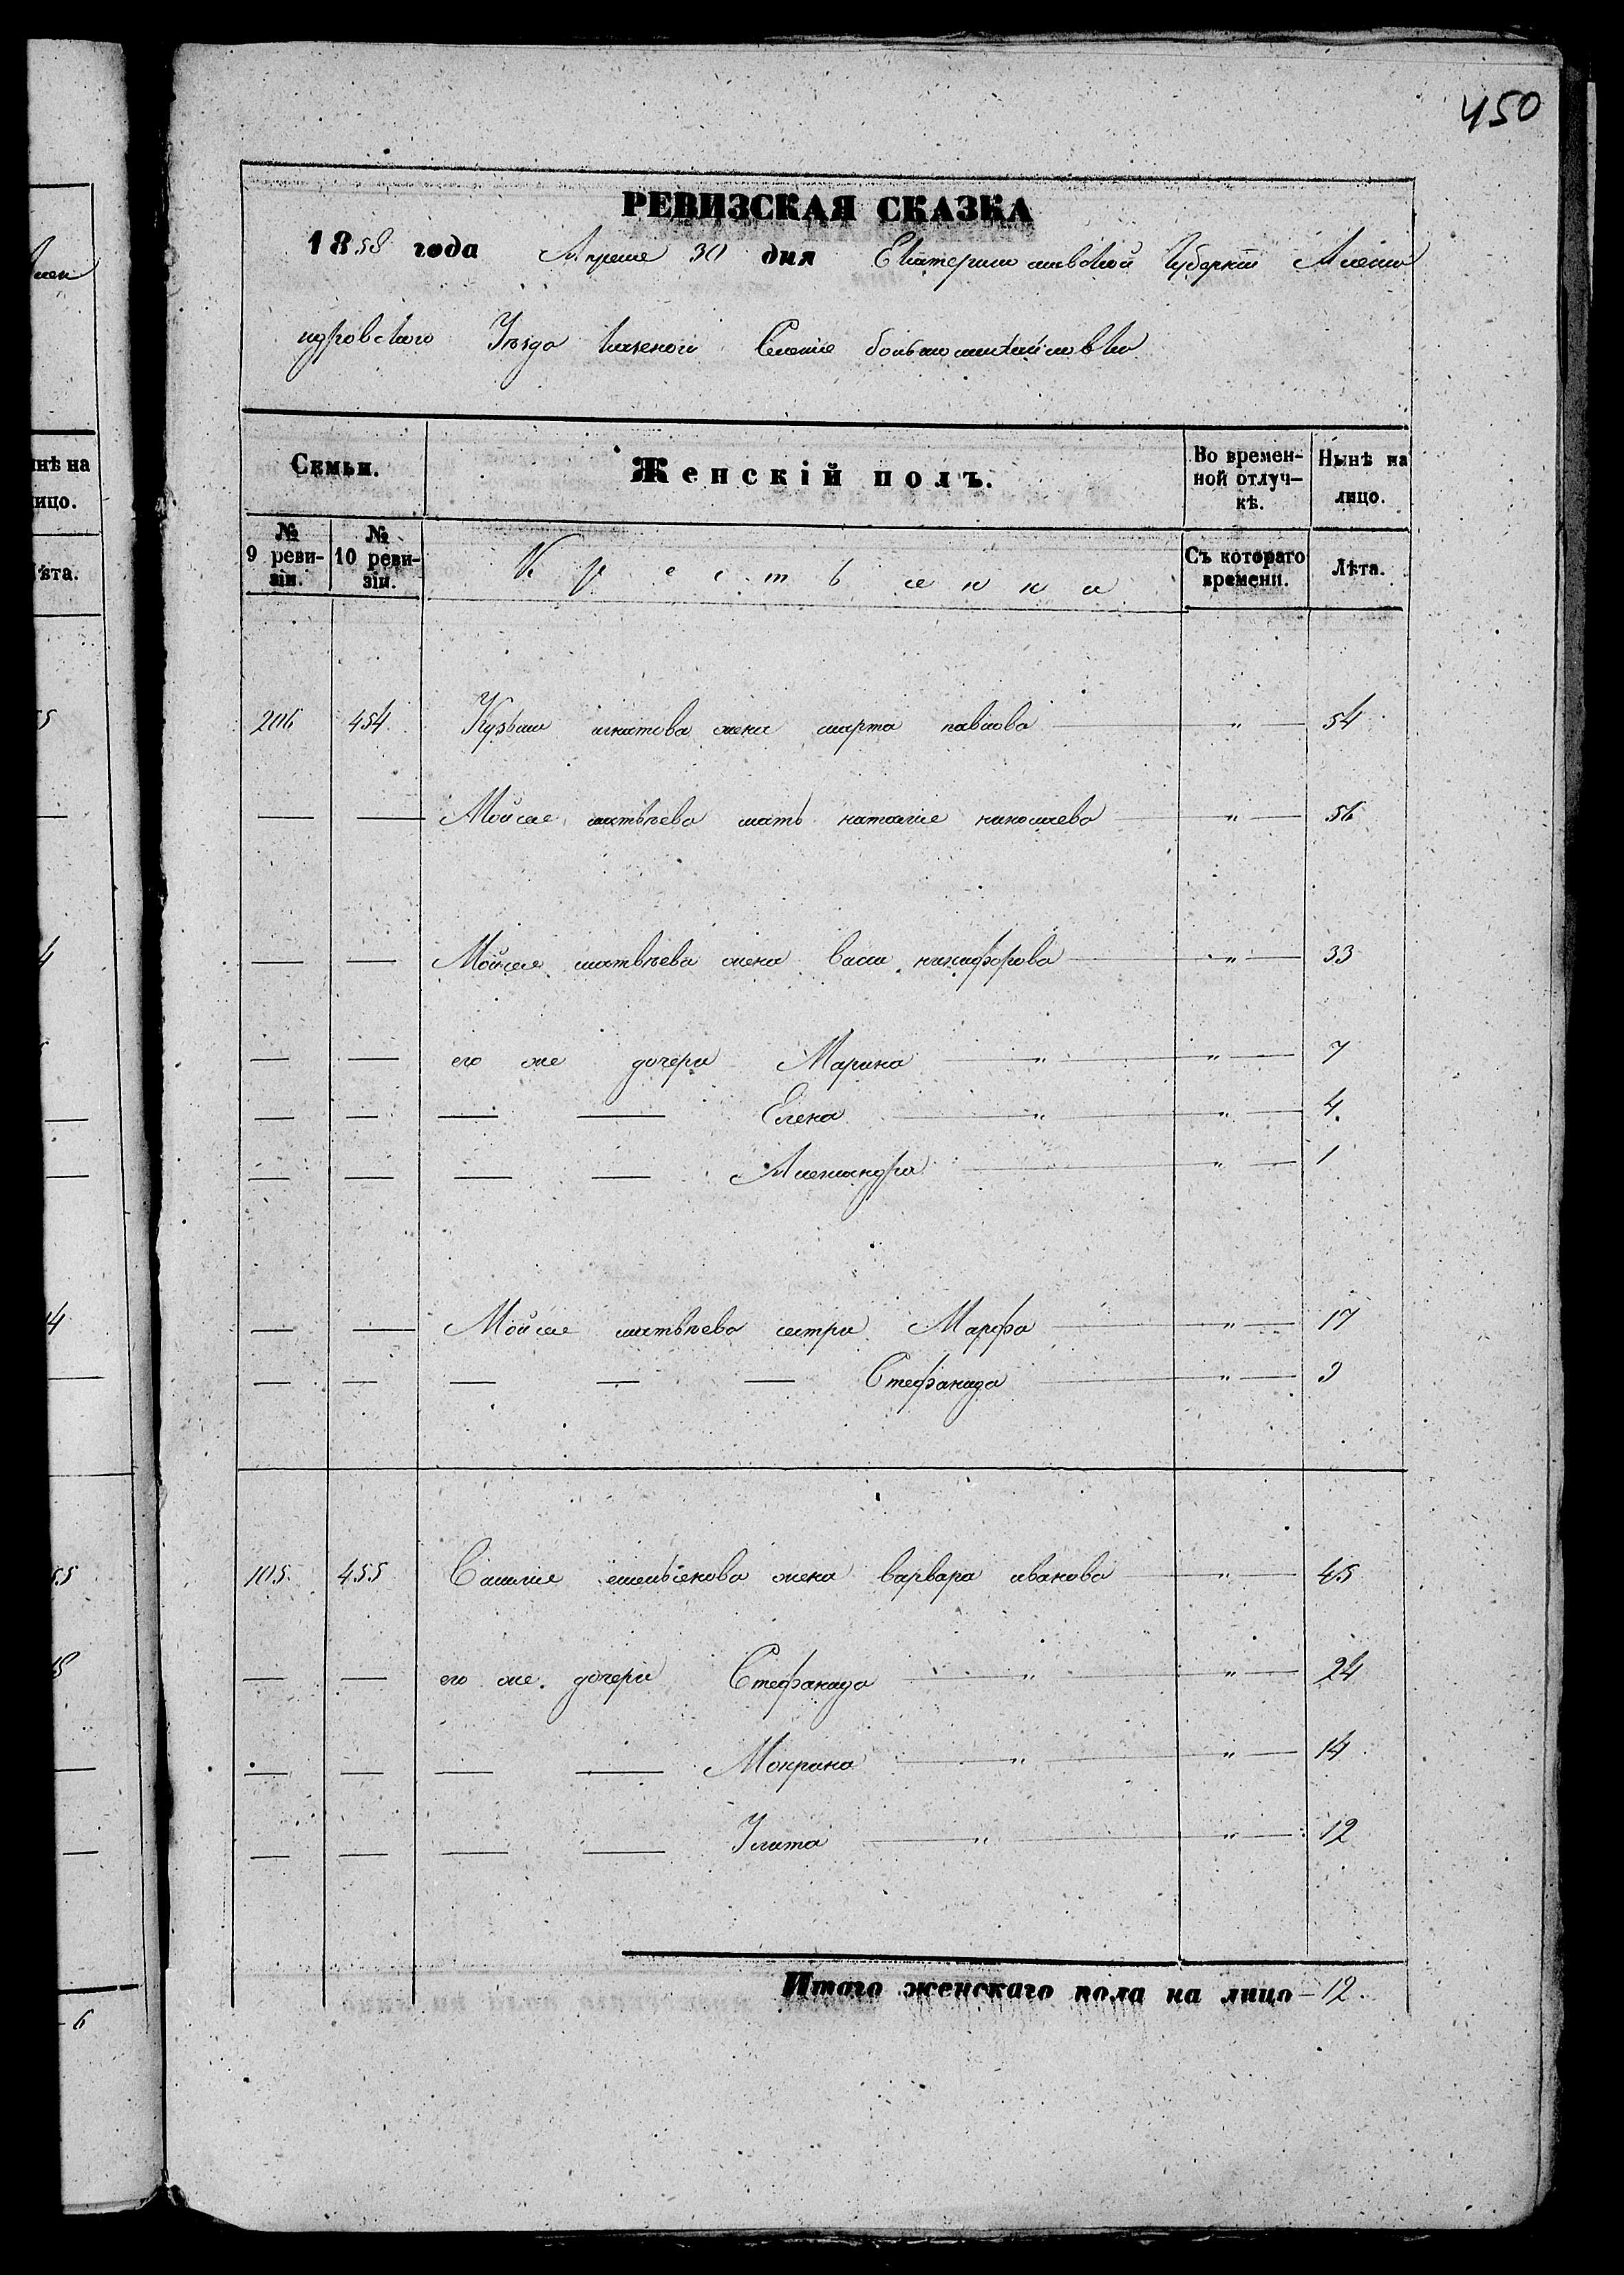 450
РЕВИЗСКАЯ СКАЗКА
1858 года Апреля 30 дня Екатеринославской Губернии Алексан
дровского Уезда казеной Селение большомихайловки
Семьи. Женскій полъ. Во времен- Нынѣ на
ной отлуч- лицо.
кѣ.
№ № Крестьяенка Съ котораго Лѣта.
9 реви- 10 реви- времени.
зіи. зіи.
206 454 Кузьмы игнатова жена марта павлова " 54
Мойсея матвѣева мать наталия николаева " 56
Мойсея матвѣева жена васа никифорова " 33
его же дочери Марина " " 7
Елена " " 4
Александра " 1
Мойсея матвѣева сестри Марфа " 17
Стефанида " 9
105 455 жена варвара иванова " 45
его же дочери Стефанида " " 24
Мокрина " " 14
Улита " " 12
Итого женскаго пола на лицо 12
нѣ на
ицо.
ѣта.
6